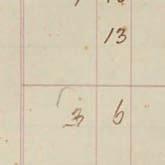 13
3 6